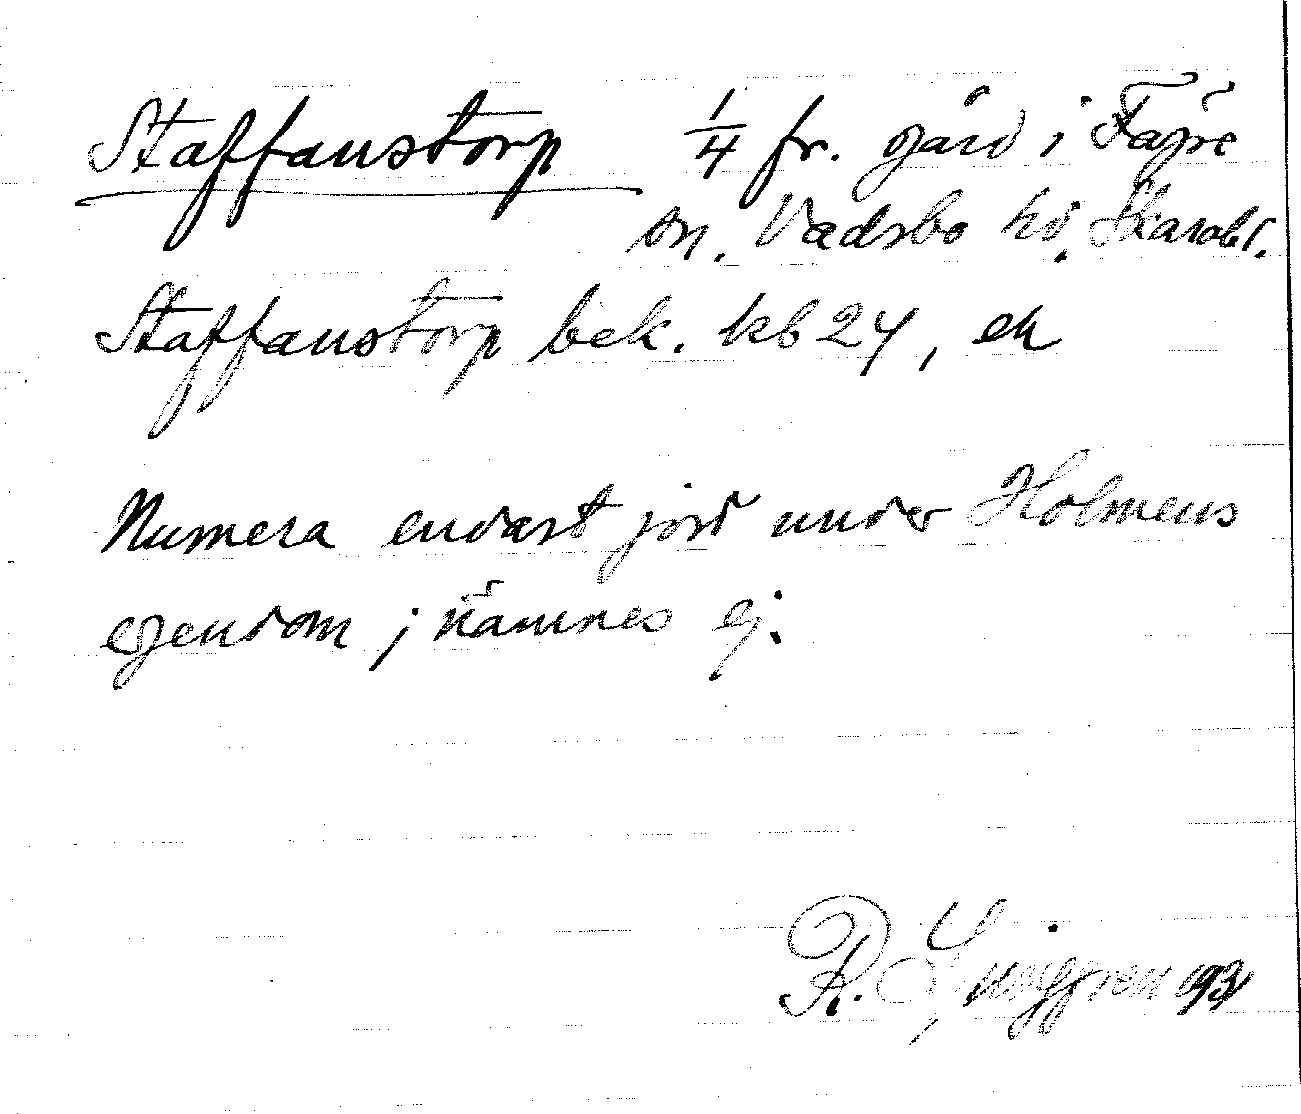 Staffanstorp 1/4 fr. gård i Fägre
sn. Vadsbo hd. Skarabl.
Staffanstorp bek. kb 24, ek
Numera endast jord under Holmens
egendom; nämnes ej.
R. Ljunggren